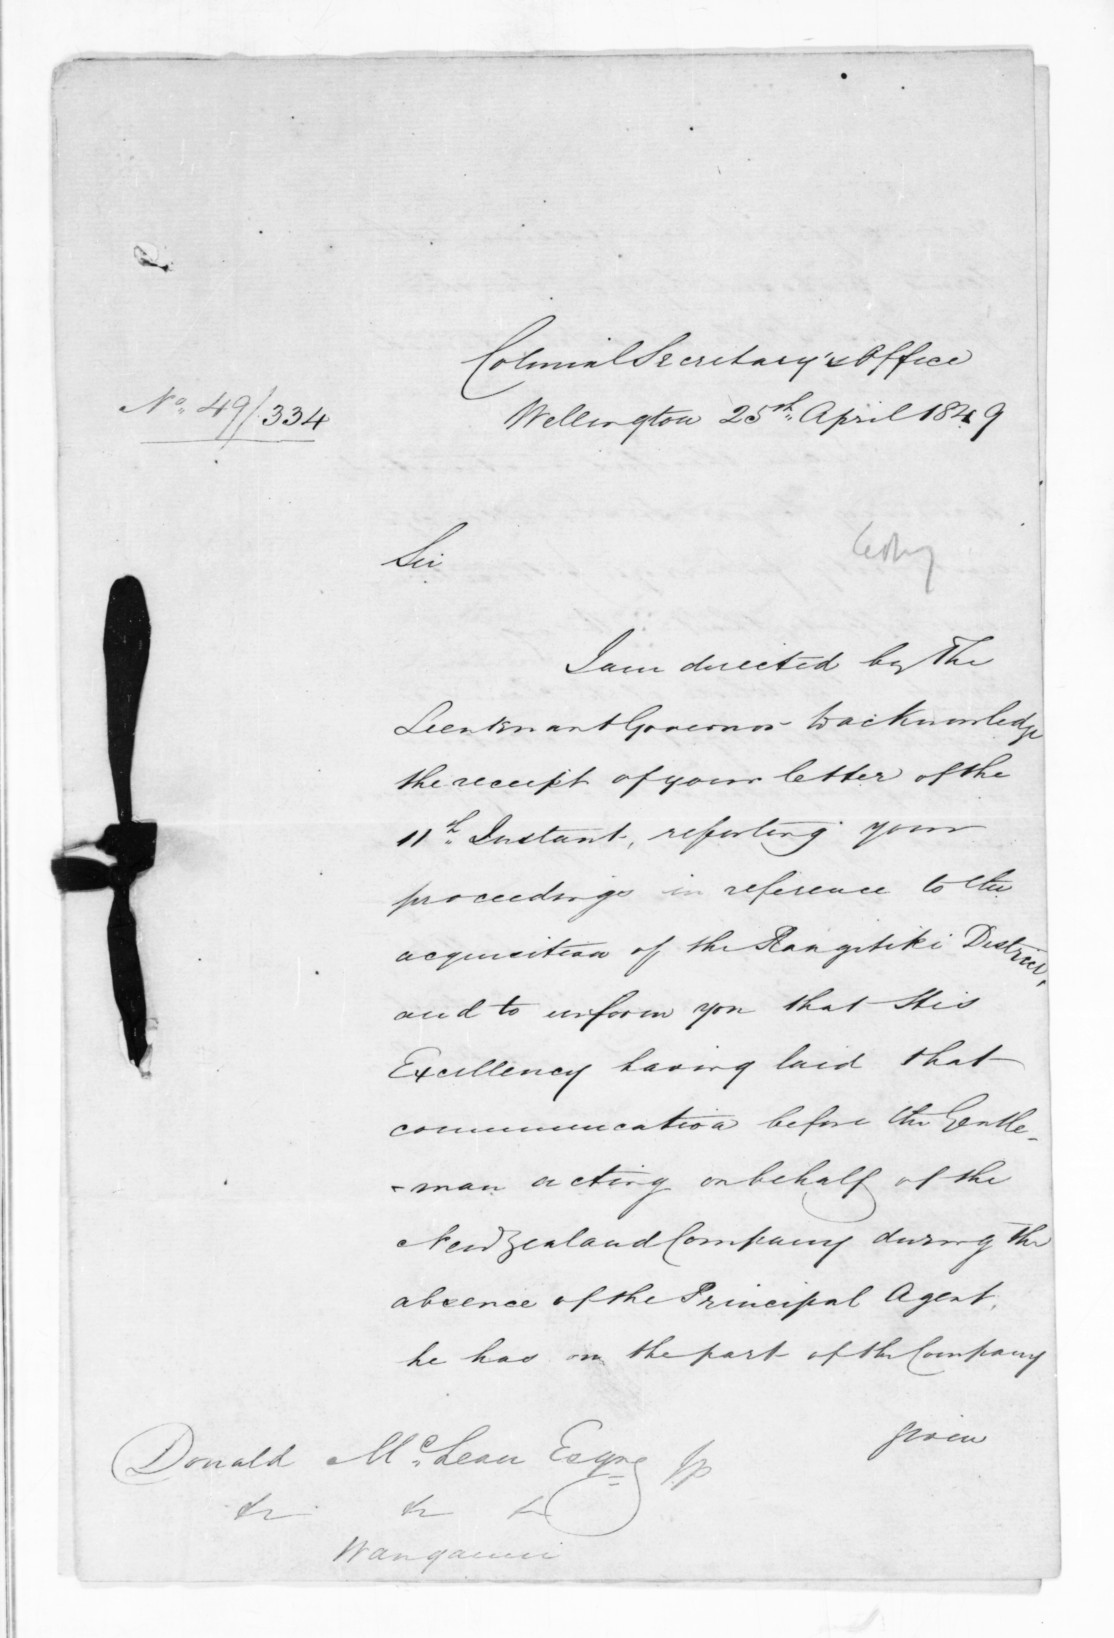 Colonial Secretary's Office
No. 49/334
Wellington 25th April 1849
Sir
I am directed by The
Lieutenant Governor to acknowledge
the receipt of your letter of the
11th Instant, reporting your
proceedings in reference to the
acquisition of the Rangitiki District,
and to inform you that His
Excellency having laid that
communication before the Gentle-
-man acting on behalf of the
New Zealand Company during the
absence of the Principal Agent,
he has on the part of the Company
given
Donald McLean Esqre JP
&c &c &c
Wanganui